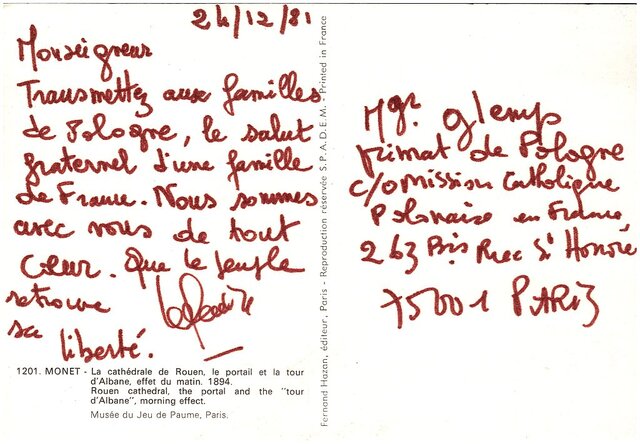 24/12/81
Monseigneur
Transmettez aux familles
de Pologne, le salut
fraternel d'une famille
de France. Nous sommes
avec vous de tout
cœur. Que le peuple
retrouve
sa liberté.
1201. MONET - La cathédrale de Rouen, le portail et la tour
d'Albane, effet du matin. 1894.
Rouen cathedral, the portal and the "tour
d'Albane", morning effect.
Musée du Jeu de Paume, Paris.
Fernand Hazan, éditeur, Paris - Reproduction réservée S.P.A.D.E.M. - Printed in France
Mgr. Glemp
primat de Pologne
c/o Mission Catholique
Polonaise en France
263 Bis Rue St Honoré
75001 PARIS